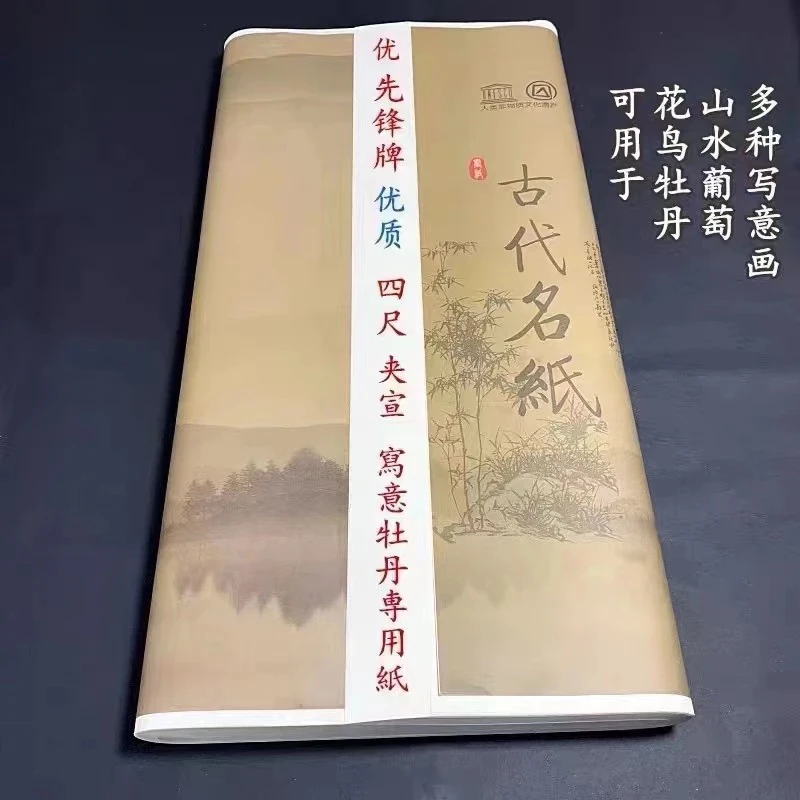 多种写意画
山水葡萄
花鸟牡丹
可用于
优 先锋牌 优质 四尺 夹宣 寫意牡丹専用紙
UNESCO
人类非物质文化遗产
古代名紙